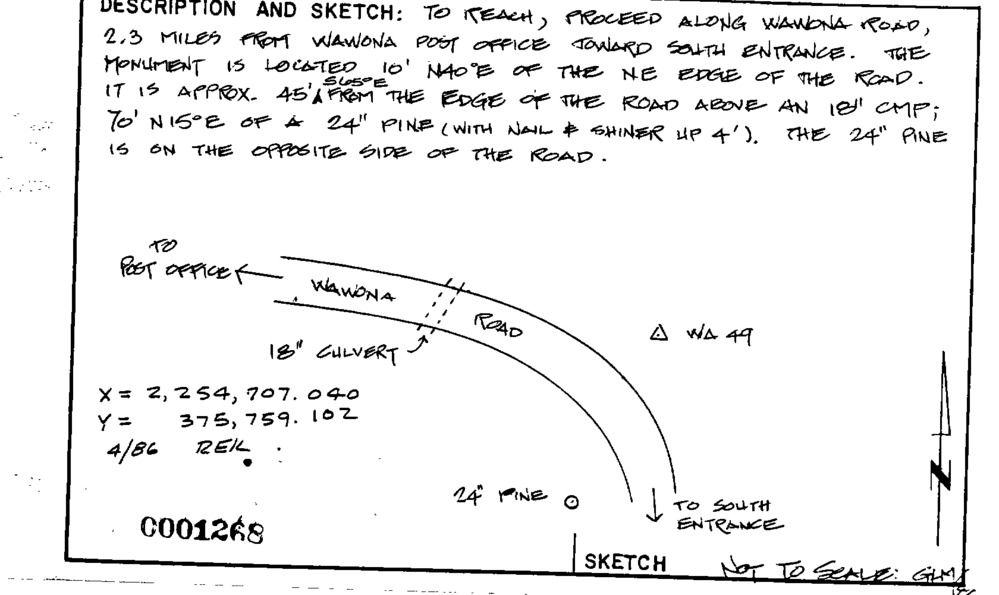 DESCRIPTION AND SKETCH: TO REACH, PROCEED ALONG WAWONA ROAD,
2.3 MILES FROM WAWONA POST OFFICE TOWARD SOUTH ENTRANCE. THE
MONUMENT IS LOCATED 10' N40°E OF THE NE EDGE OF THE ROAD.
S65°E
IT IS APPROX. 45' FROM THE EDGE OF THE ROAD ABOVE AN 18" CMP;
70' N15°E OF A 24" PINE (WITH NAIL & SHINER UP 4'). THE 24" PINE
IS ON THE OPPOSITE SIDE OF THE ROAD.
TO
POST OFFICE
WAWONA
ROAD
WA 49
18" CULVERT
X = 2,254,707.040
Y = 375,759.102
4/86 REK
24" PINE
TO SOUTH
ENTRANCE
N
C001268
SKETCH
NOT TO SCALE: GLM